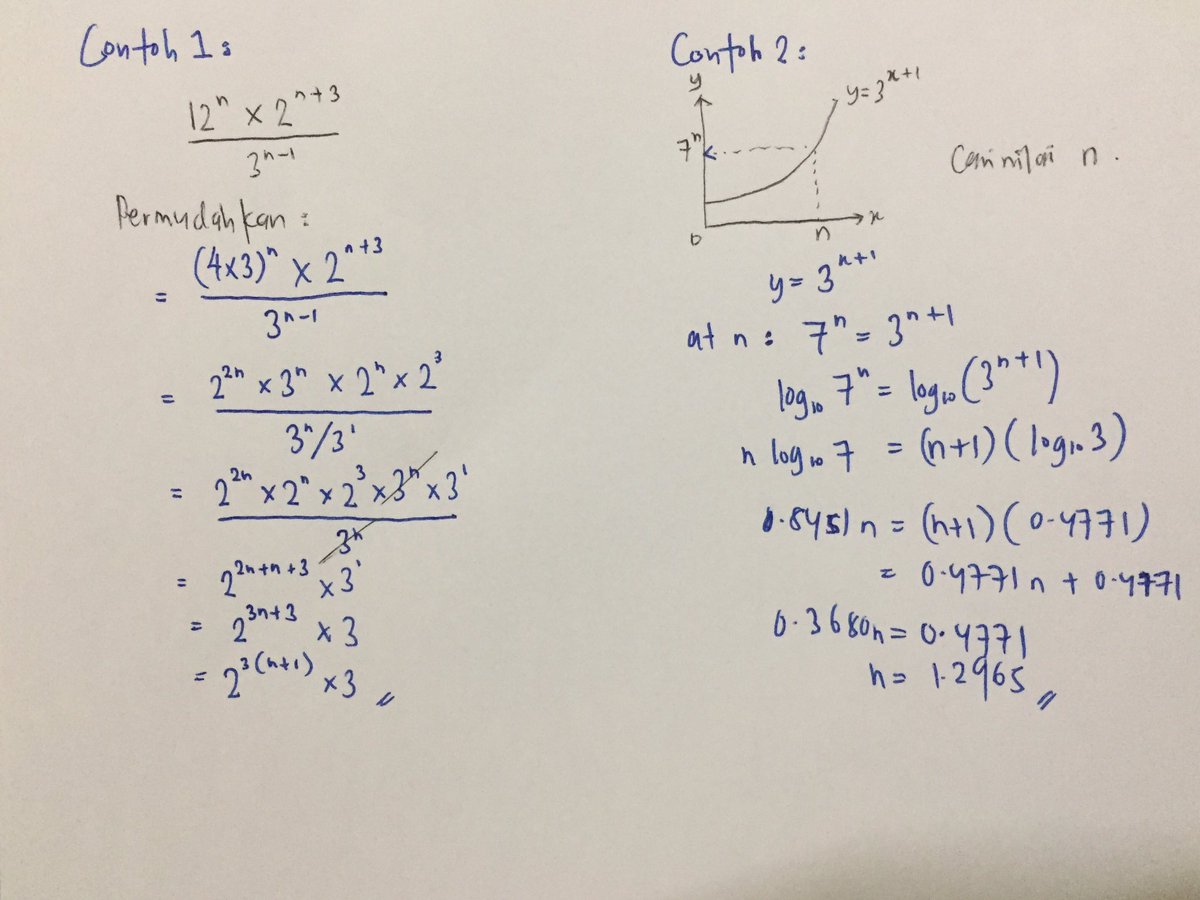 Contoh 1:
12^n × 2^(n+3)
3^(n-1)
Permudahkan:
= (4×3)^n × 2^(n+3)
3^(n-1)
= 2^(2n) × 3^n × 2^n × 2^3
3^n/3^1
= 2^(2n) × 2^n × 2^3 × 3^n × 3^1
3^n
= 2^(2n+n+3) × 3^1
= 2^(3n+3) × 3
= 2^(3(n+1)) × 3 //
Contoh 2:
y
y=3^(x+1)
7^n
0
n
x
Cari nilai n.
y = 3^(x+1)
at n: 7^n = 3^(n+1)
log₁₀ 7^n = log₁₀(3^(n+1))
n log₁₀ 7 = (n+1)(log₁₀ 3)
0.8451n = (n+1)(0.4771)
= 0.4771n + 0.4771
0.3680n = 0.4771
n = 1.2965 //